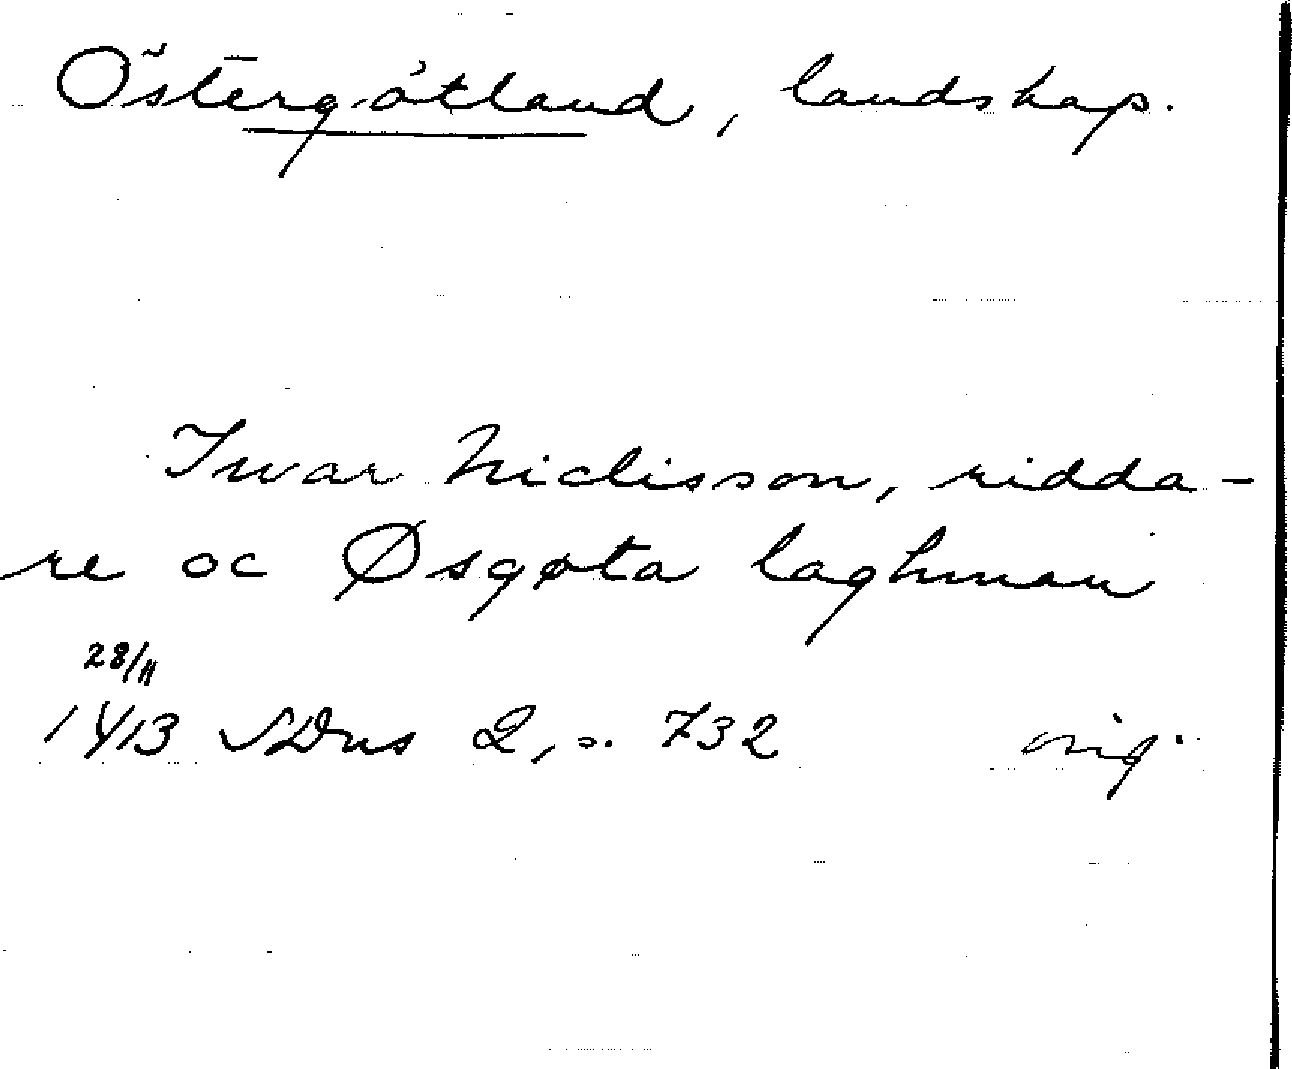 Östergötland, landskap.
Iwar Niclisson, ridda-
re oc Øsgøta laghman
28/11
1413 SDns 2, s. 732 orig.